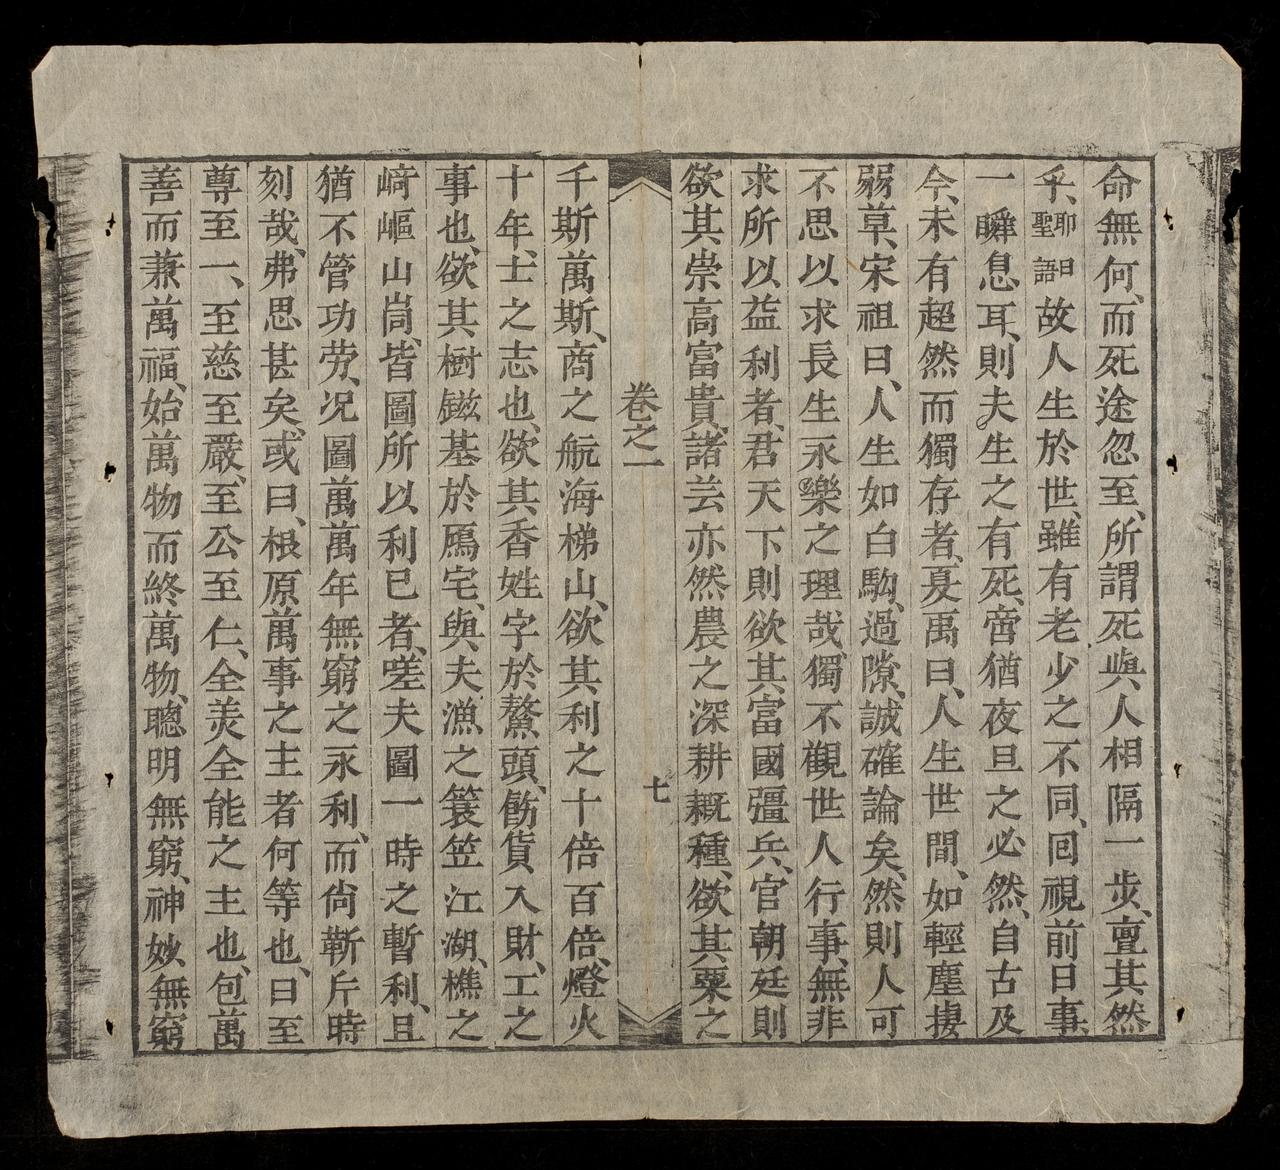 命無何、而死途忽至、所謂死與人相隔一步、亶其然
乎、耶曰聖語故人生於世、雖有老少之不同、回視前日事、
一瞬息耳、則夫生之有死、啻猶夜旦之必然、自古及
今、未有超然而獨存者、夏禹曰、人生世間、如輕塵捿
弱草、宋祖曰、人生如白駒、過隙、誠確論矣、然則人可
不思以求長生永樂之理哉、獨不觀世人行事、無非
求所以益利者、君天下則欲其富國彊兵、官朝廷則
欲其崇高富貴、諸芸亦然農之深耕穊種、欲其粟之
卷之一
七
千斯萬斯、商之航海梯山、欲其利之十倍百倍、燈火
十年、士之志也、欲其香姓字於鰲頭、飭貨入財、工之
事也、欲其樹鎡基於鴈宅、與夫漁之簑笠江湖、樵之
﨑嶇山崗、皆圖所以利已者、嗟夫圖一時之暫利、且
猶不管功劳、况圖萬萬年無窮之永利、而尚靳斤時
刻哉、弗思甚矣、或曰、根原萬事之主者何等也、曰至
尊至一、至慈至嚴、至公至仁、全美全能之主也、包萬
善而兼萬福、始萬物而終萬物、聰明無窮、神妙無窮